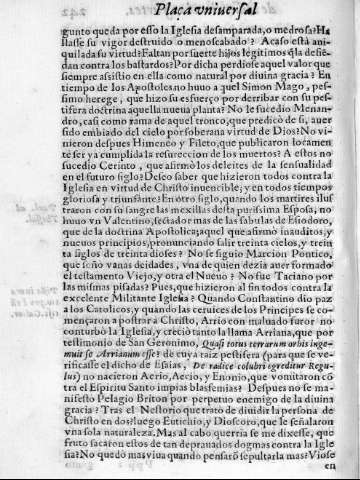 Plaça vniuersal
gunto queda por esso la Iglesia desamparada, o medrosa? Ha
llasse su vigor destruido o menoscabado? Acaso està ani-
quilada su virtud? Faltan por suerte hijos legitimos q̃ la defie-
dan contra los bastardos? Por dicha perdiose aquel valor que
siempre assistio en ella como natural por diuina gracia? En
tiempo de los Apostoles no huuo aquel Simon Mago, pes-
simo herege, que hizo su esfuerço por derribar con su pes-
tifera doctrina aquella nueua planta? No le sucedio Menan-
dro, casi como rama de aquel tronco, que predicò de si, auer
sido embiado del cielo por soberana virtud de Dios? No vi-
nieron despues Himeneo y Fileto, que publicaron locamen
te ser ya cumplida la resureccion de los muertos? A estos no
sucedio Cerinto, que afirmò los deleites de la sensualidad
en el futuro siglo? Deseo saber que hizieron todos contra la
Iglesia en virtud de Christo inuencible, y en todos tiempos
gloriosa y triunfante? En otro siglo, quando los martires ilus
traron con su sangre las mexillas desta purissima Esposa, no
huuo vn Valentino, sectador mas de las fabulas de Esiodoro,
que de la doctrina Apostolica, aquel que afirmò inauditos, y
nueuos principios, pronunciando salir treinta cielos, y trein
ta siglos de treinta dioses? No se siguio Marcion Pontico,
que señò vanas deidades, vna de quien dezia auer formado
el testamento Viejo, y otra el Nueuo? No fue Taciano por
las mismas pisadas? Pues, que hizieron al fin todos contra la
excelente Militante Iglesia? Quando Constantino dio paz
a los Catolicos, y quando las ceruices de los Principes se co
mençaron a postrar a Christo, Arrio con maluado furor no
conturbò la Iglesia, y crecio tanto la llama Arriana, que por
testimonio de San Geronimo, Quasi totus terrarum orbis inge-
muit se Arrianum esse? de cuya raiz pestifera (para que se ve-
rificasse el dicho de Isaias, De radice colubri egredietur Regu-
lus) no nacieron Aerio, Aecio, y Enomio, que vomitaron cõ
tra el Espiritu Santo impias blasfemias? Despues no se ma-
nifesto Pelagio Briton por perpetuo enemigo de la diuina
gracia? Tras el Nestorio que tratò de diuidir la persona de
Christo en dos? luego Eutichio, y Dioscoro, que le señalaron
vna sola naturaleza. Mas al cabo querria se me dixesse, que
fruto sacaron estos de tan depranados dogmas contra la Igle
sia? No quedò mas viua quando pensarõ sepultarla mas? Viose
en